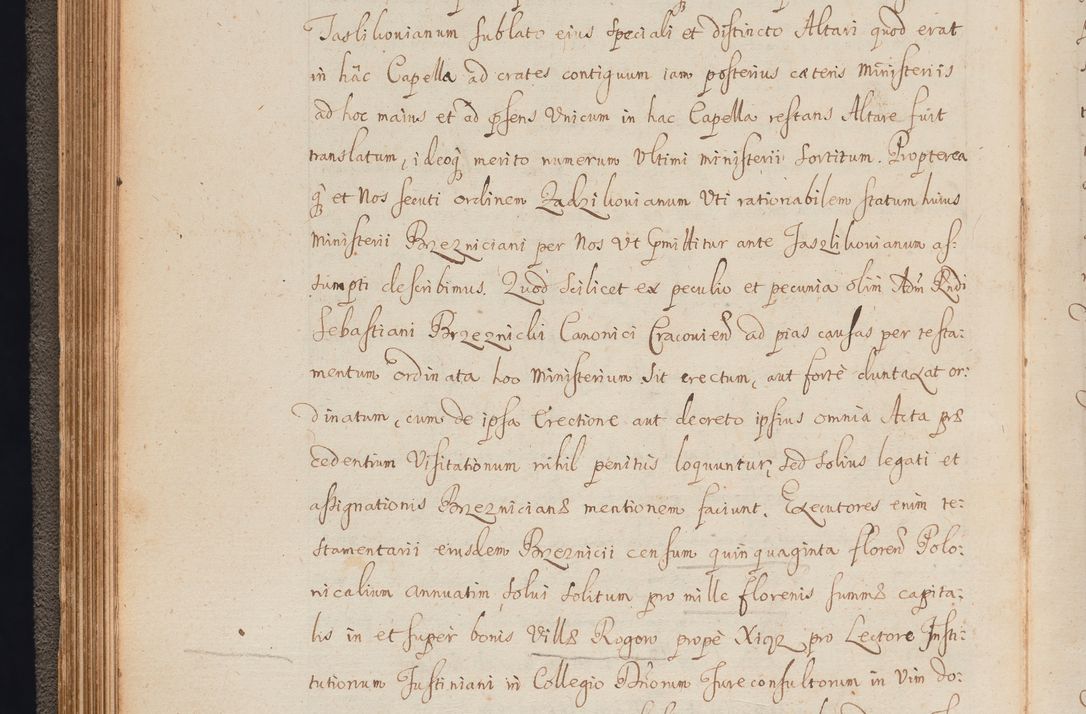 Jaslikovianum sublato eius speciali et distincto Altari quod erat
in hac Capella ad crates contiguum iam posterius cæteris Ministeriis
ad hoc maius et ad pñsens Vnicum in hac Capella restans Altare fuit
translatum, ideoq̃ merito numerum Vltimi ministerii sortitum. Propterea
q̃ et Nos secuti ordinem Zadzikovianum Vti rationabilem statum huius
Ministerii Brzezniciani per Nos Vt p̃mittitur ante Jaszlikovianum as-
sumpti describimus. Quod scilicet ex peculio et pecunia olim Adm̃ Rñdi
Sebastiani Brzeznicki Canonici Cracovieñ ad pias causas per testa-
mentum ordinata hoc Ministerium sit erectum, aut forte duntaxat or-
dinatum, cum de ipsa Erectione aut decreto ipsius omnia Acta præ
cedentium Visitationum nihil penitus loquuntur, sed solius legati et
assignationis Brzezniciañæ mentionem faciunt. Executores enim te-
stamentarii eiusdem Brzeznicii censum quinquaginta floreñ Polo-
nicalium annuatim solui solitum pro mille florenis summæ capita-
lis in et super bonis Villæ Rogow propè Xiąz pro Lectore Insti-
tutionum Justiniani in Collegio Dñorum Jureconsultorum in Vim do-